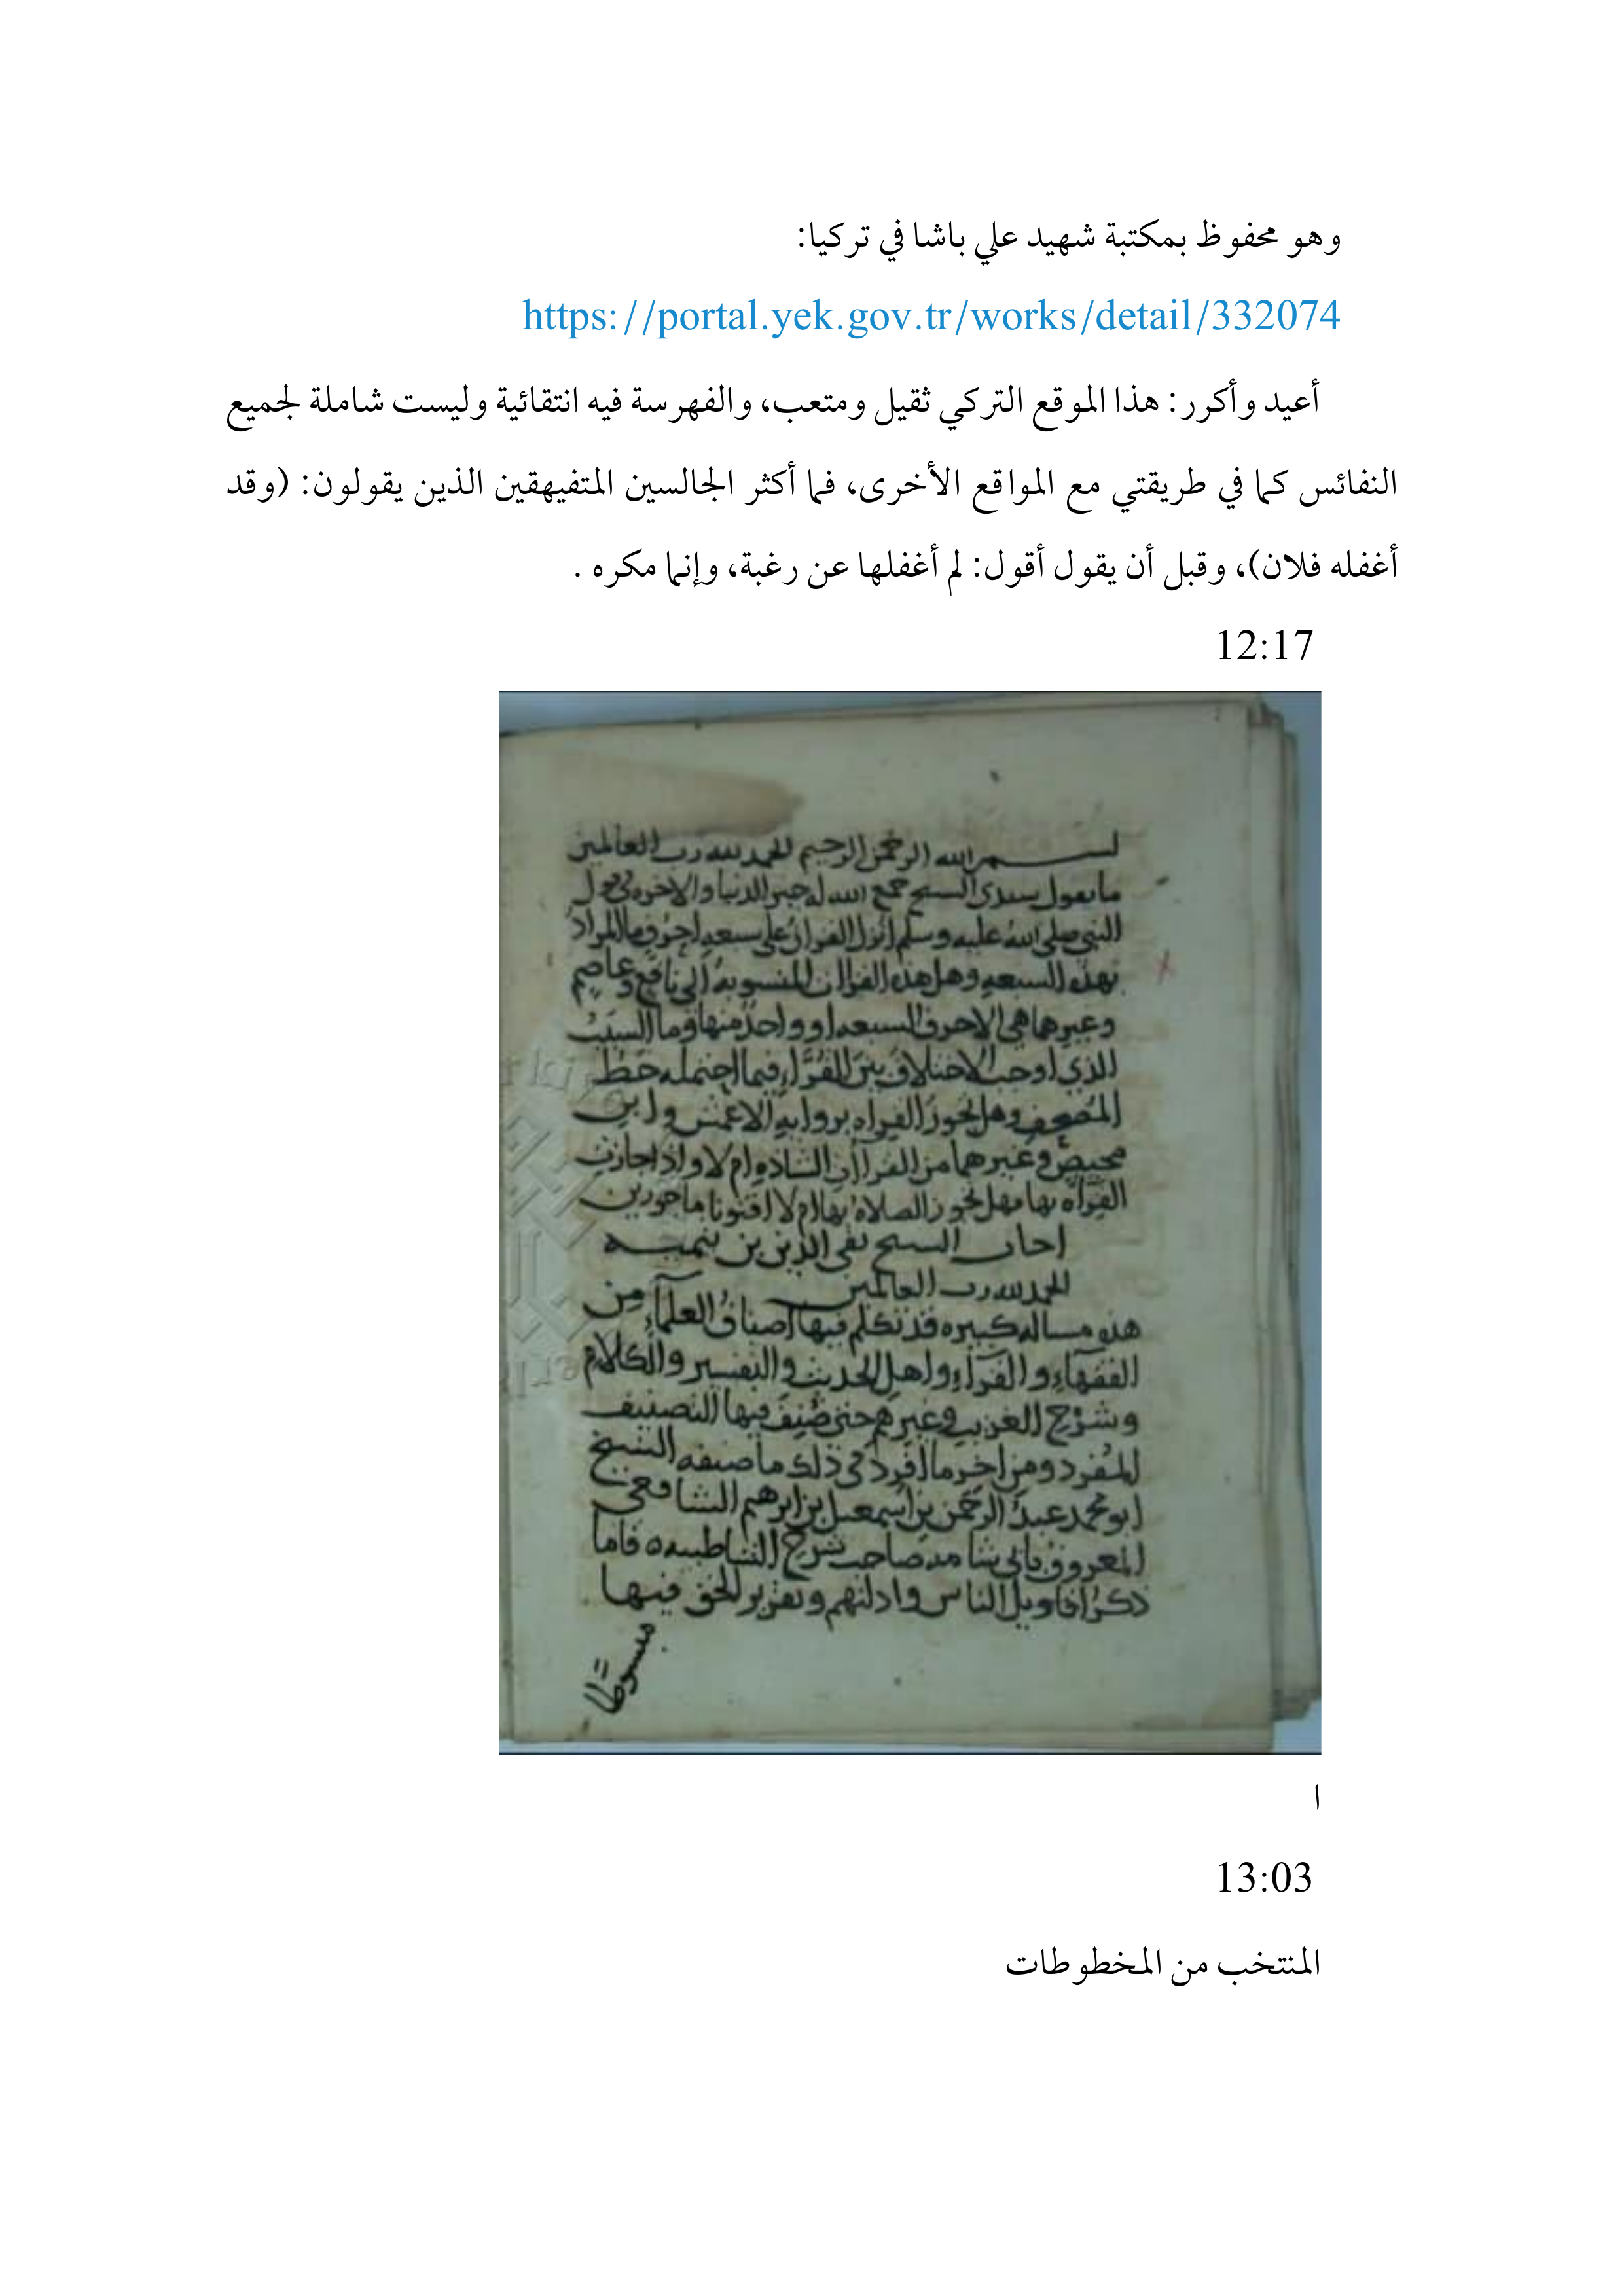 وهو محفوظ بمكتبة شهيد علي باشا في تركيا:
https://portal.yek.gov.tr/works/detail/332074
أعيد وأكرر: هذا الموقع التركي ثقيل ومتعب، والفهرسة فيه انتقائية وليست شاملة لجميع
النفائس كما في طريقتي مع المواقع الأخرى، فما أكثر الجالسين المتفيهقين الذين يقولون: (وقد
أغفله فلان)، وقبل أن يقول أقول: لم أغفلها عن رغبة، وإنما مكره .
12:17
بسم الله الرحمن الرحيم الحمد لله رب العالمين
ما يقول سيدي الشيخ جمع الله له خير الدنيا والاخرة في قول
النبي صلى الله عليه وسلم انزل القرآن على سبعة احرف ما المراد
بهذه السبعة وهل هذه القراات المنسوبة الى نافع وعاصم
وغيرهما هي الاحرف السبعة او واحد منها وما السبب
الذي اوجب الاختلاف بين القراء فيما احتمله خط
المصحف وهل تجوز القراة برواية الاعمش وابن
محيصن وغيرهما من القراآت الشاذة ام لا واذا جازت
القراة بها فهل تجوز الصلاة بها ام لا افتونا ماجورين
اجاب الشيخ تقي الدين بن تيمية
الحمد لله رب العالمين
هذه مسالة كبيرة قد تكلم فيها اصناف العلماء من
الفقهاء والقراء واهل الحديث والتفسير والكلام
وشرح الغريب وغيرهم حتى صنف فيها التصنيف
المفرد ومن اخر ما افرد في ذلك ما صنفه الشيخ
ابو محمد عبد الرحمن بن اسمعيل بن ابرهيم الشافعي
المعروف بابي شامة صاحب شرح الشاطبية فاما
ذكر اقاويل الناس وادلتهم وتقرير الحق فيها
مبسوطا
ا
13:03
المنتخب من المخطوطات